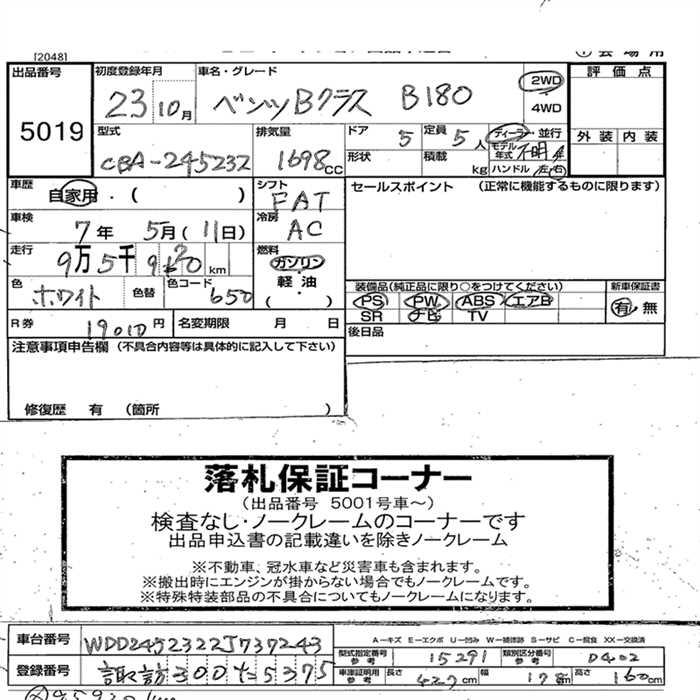 [2048]
出品番号 5019
初度登録年月 23 10月
車名・グレード ベンツBクラス B180
2WD ・ 4WD
評価点
外装 内装
型式 CBA-245232
排気量 1698CC
ドア 5
定員 5人
ディーラー・並行
モデル年式 不明
形状
積載 kg
ハンドル 左右
車歴 自家用・( )
シフト FAT
セールスポイント (正常に機能するものに限ります)
車検 7年 5月(11日)
冷房 AC
走行 9万5千 km
燃料 ガソリン 軽油・( )
色 ホワイト
色替
色コード 650
装備品(純正品に限り○をつけてください)
PS PW ABS エアB
SR ナビ TV
新車保証書 有・無
R券 19010円
名変期限 月 日
後日品
注意事項申告欄 (不具合内容等は具体的に記入して下さい)
修復歴 有 (箇所 )
落札保証コーナー
(出品番号 5001号車~)
検査なし・ノークレームのコーナーです
出品申込書の記載違いを除きノークレーム
※不動車、冠水車など災害車も含まれます。
※搬出時にエンジンが掛からない場合でもノークレームです。
※特殊特装部品の不具合についてもノークレームになります。
車台番号 WDD2452322J737243
A-キズ E-エクボ U-凹み W-補修跡 S-サビ C-腐食 XX-交換済
型式指定番号 参考 15291
類別区分番号 参考 0402
登録番号 諏訪300た5375
車庫証明用 参考 長さ 427cm 幅 178cm 高さ 160cm